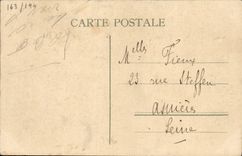 163/194
CARTE POSTALE
Melles Fieux
23 rue Steffen
Asnières
Seine